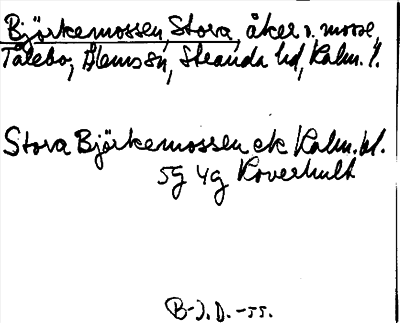 Björkemossen, Stora, åker o. mosse,
Tålebo, Ålems sn, Stranda hd, Kalm. l.
Stora Björkemossen ek Kalm. bl.
5g 4g Roverhult
B-J. D. -55.